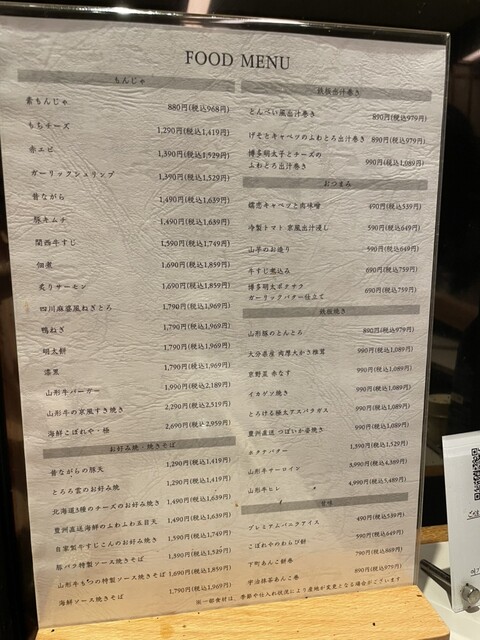 FOOD MENU
もんじゃ
素もんじゃ 880円(税込968円)
もちチーズ 1,290円(税込1,419円)
赤エビ 1,390円(税込1,529円)
ガーリックシュリンプ 1,390円(税込1,529円)
昔ながら 1,490円(税込1,639円)
豚キムチ 1,490円(税込1,639円)
関西牛すじ 1,590円(税込1,749円)
佃煮 1,690円(税込1,859円)
炙りサーモン 1,690円(税込1,859円)
四川麻婆風ねぎとろ 1,790円(税込1,969円)
鴨ねぎ 1,790円(税込1,969円)
明太餅 1,790円(税込1,969円)
漆黒 1,790円(税込1,969円)
山形牛バーガー 1,990円(税込2,189円)
山形牛の京風すき焼き 2,290円(税込2,519円)
海鮮こぼれや・極 2,690円(税込2,959円)
お好み焼・焼きそば
昔ながらの豚天 1,290円(税込1,419円)
とろろ雲のお好み焼 1,290円(税込1,419円)
北海道3種のチーズのお好み焼き 1,490円(税込1,639円)
豊洲直送海鮮のふわふわ五目天 1,490円(税込1,639円)
自家製牛すじこんのお好み焼き 1,590円(税込1,749円)
豚バラ特製ソース焼きそば 1,390円(税込1,529円)
山形牛もつの特製ソース焼きそば 1,690円(税込1,859円)
海鮮ソース焼きそば 1,790円(税込1,969円)
鉄板出汁巻き
とんぺい風出汁巻き 890円(税込979円)
げそとキャベツのふわとろ出汁巻き 890円(税込979円)
博多明太子とチーズの
ふわとろ出汁巻き 990円(税込1,089円)
おつまみ
嬬恋キャベツと肉味噌 490円(税込539円)
冷製トマト 京風出汁浸し 590円(税込649円)
山芋のお造り 590円(税込649円)
牛すじ煮込み 690円(税込759円)
博多明太ポテサラ
ガーリックバター仕立て 690円(税込759円)
鉄板焼き
山形豚のとんとろ 890円(税込979円)
大分県産 肉厚大かさ椎茸 990円(税込1,089円)
京野菜 赤なす 990円(税込1,089円)
イカゲソ焼き 990円(税込1,089円)
とろける極太アスパラガス 990円(税込1,089円)
豊洲直送 つぼいか香焼き 990円(税込1,089円)
ホタテバター 1,390円(税込1,529円)
山形牛サーロイン 3,990円(税込4,389円)
山形牛ヒレ 4,990円(税込5,489円)
甘味
プレミアムバニラアイス 490円(税込539円)
こぼれやのわらび餅 590円(税込649円)
下町あんこ餅巻 790円(税込869円)
宇治抹茶あんこ巻 890円(税込979円)
※一部食材は、季節や仕入れ状況により産地が変更となる場合がございます